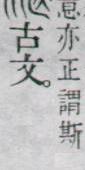 意亦正謂斯
古文。